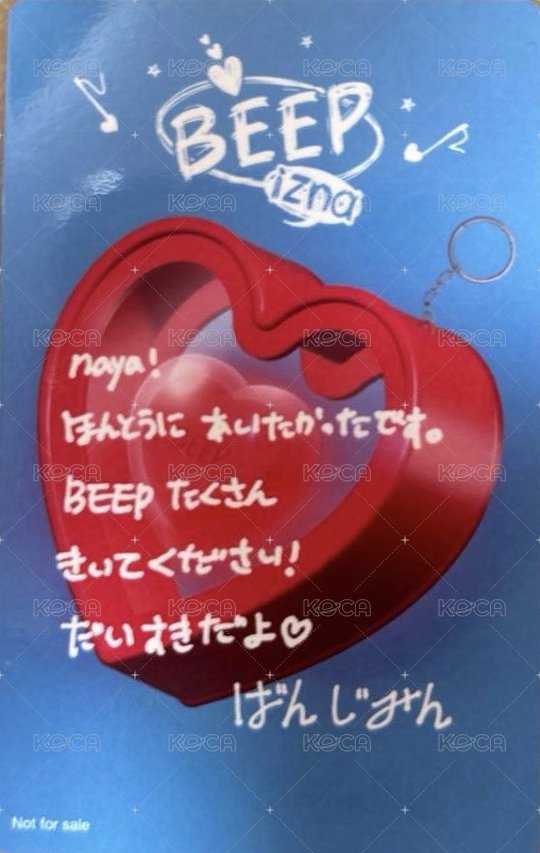 BEEP
izna
naya!
ほんとうに あいたかったです。
BEEP たくさん
きいてください!
だいすきだよ♡
ばんじみん
Not for sale
KOCA